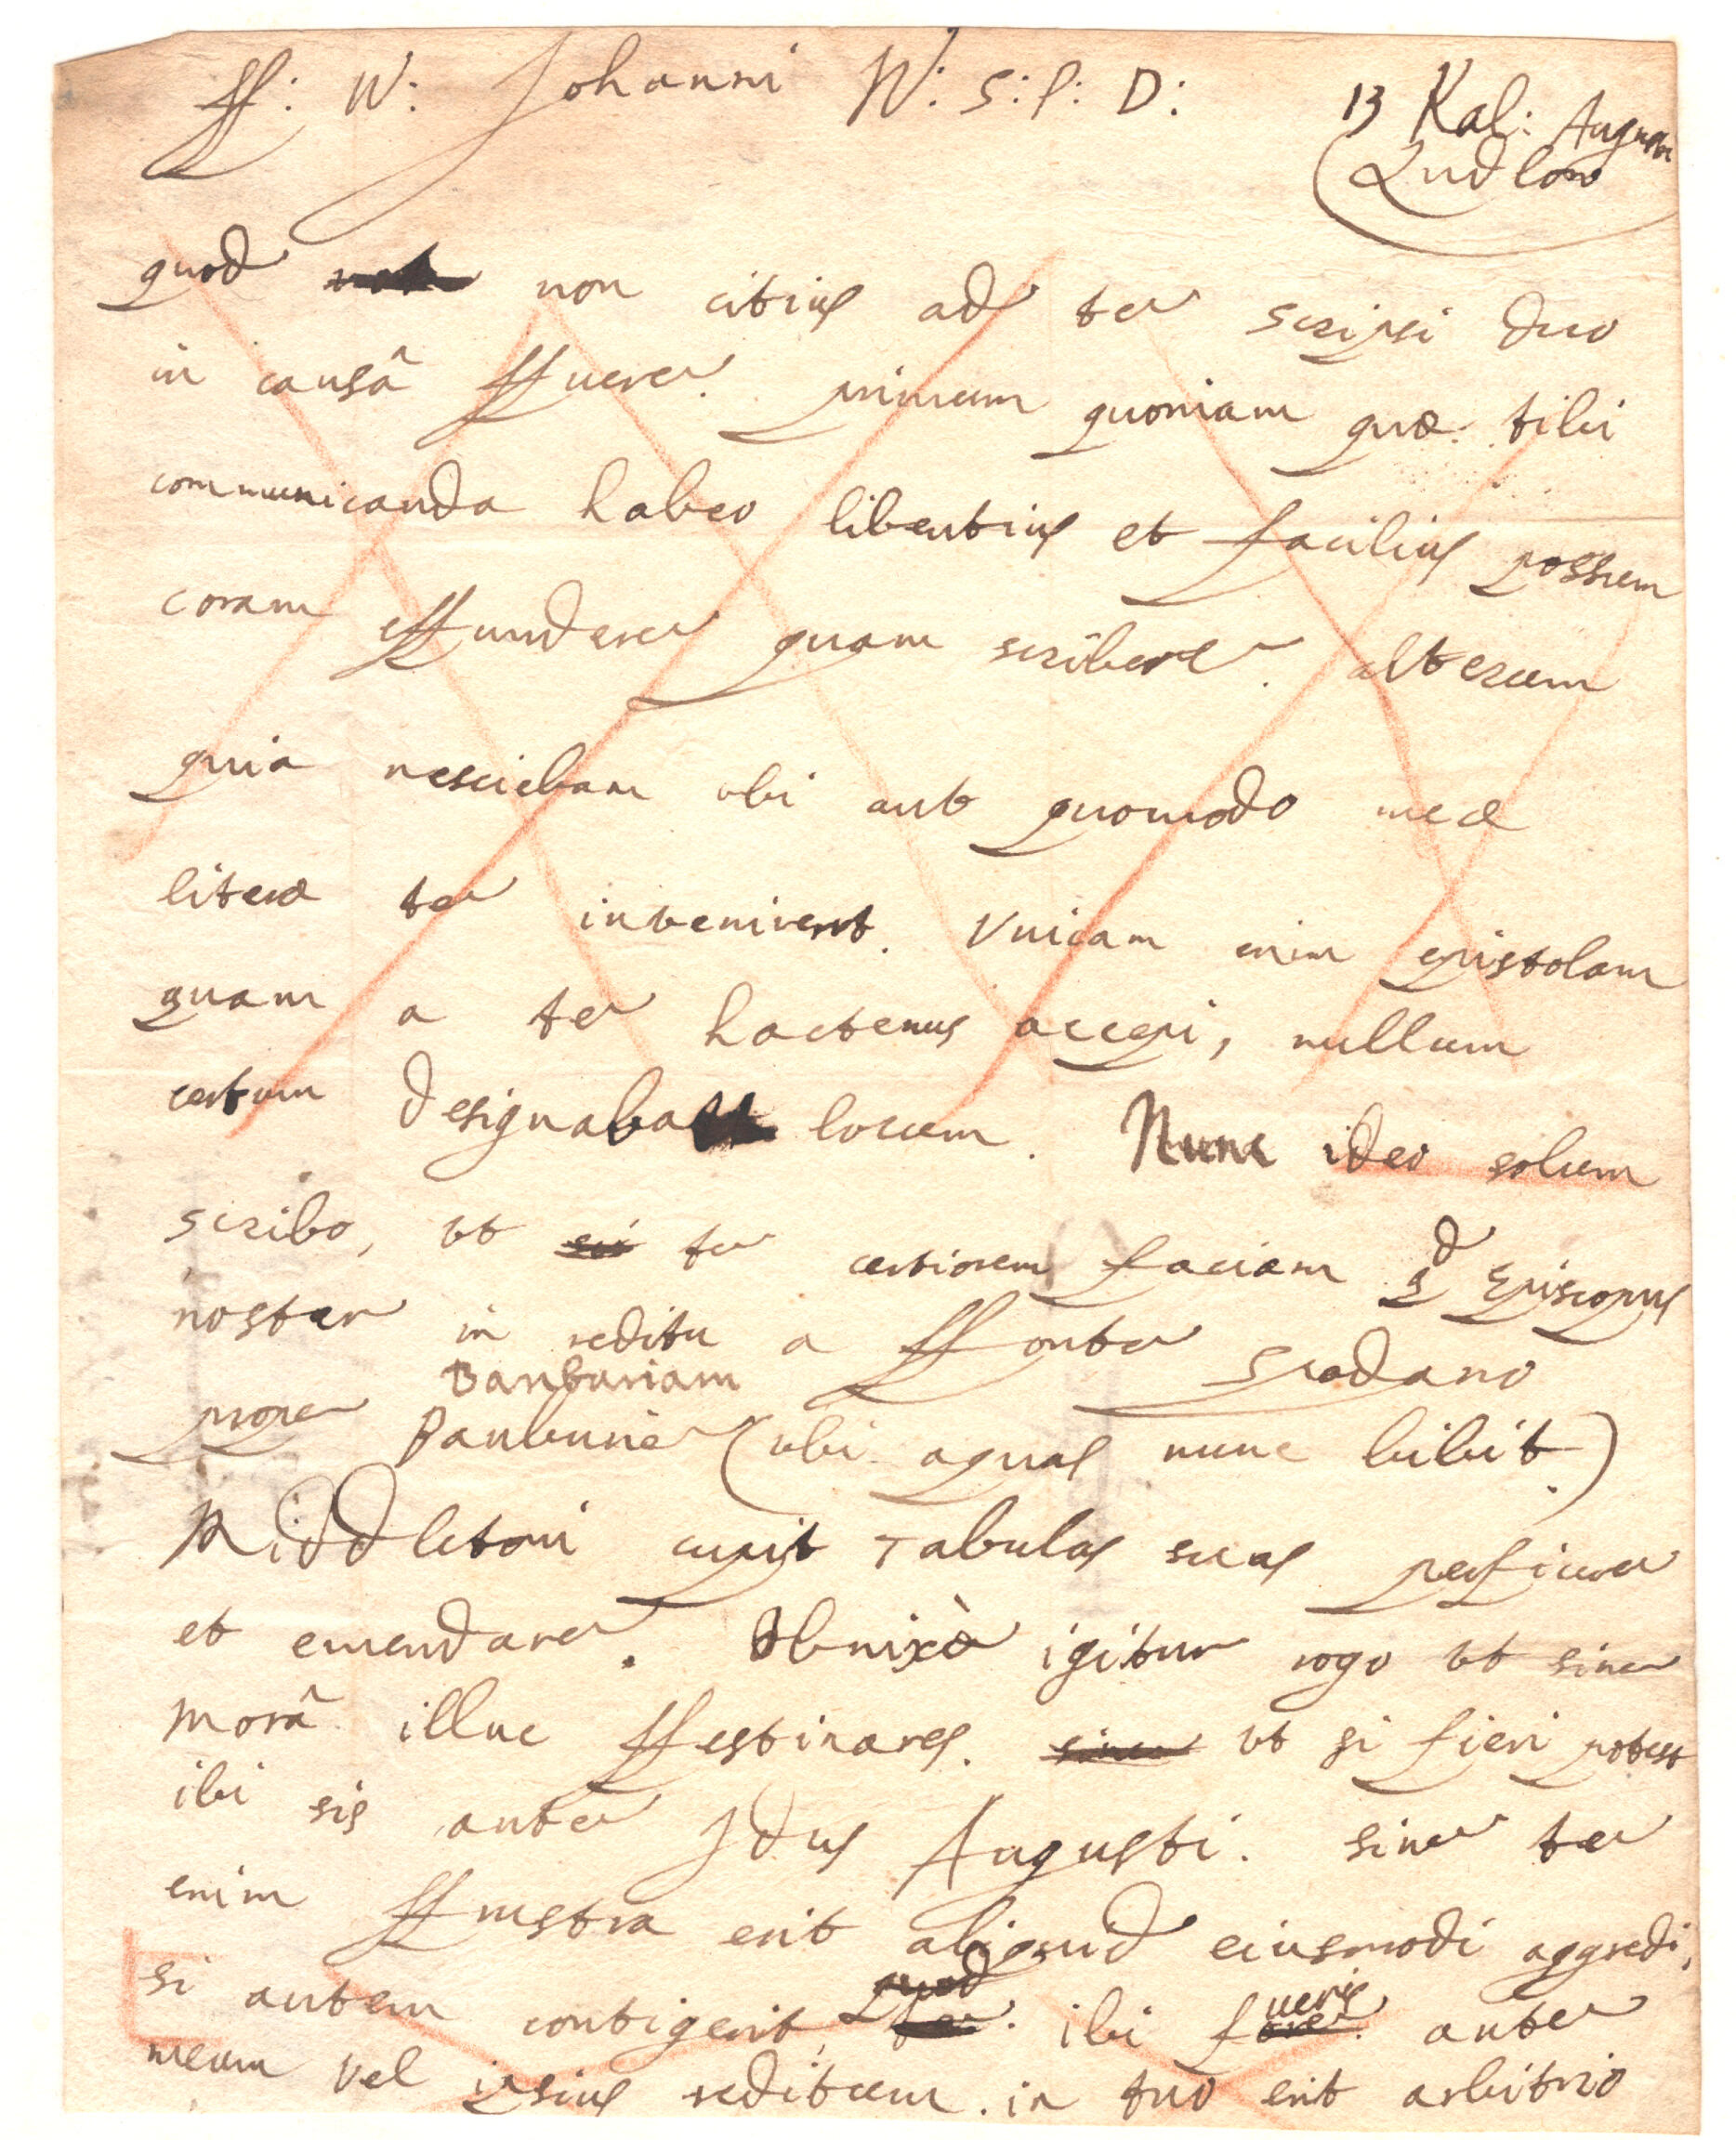 ff: W: Johanni W: S: P: D:
13 Kal: Augusti
Ludlow
quod non citius ad te scripsi duo
in causâ ffuere. primum quoniam quæ tibi
communicanda habeo libentius et facilius possum
coram effundere quam scribere. alterum
quia nesciebam ubi aut quomodo meæ
literæ te invenirent. Vnicam enim epistolam
quam a te hactenus accepi, nullum
certum designaba locum. Nunc ideo solum
scribo, vt te certiorem faciam qd Episcopus
noster in reditu a ffonte Spadano
Banburiam
prope Banburie (ubi aquas nunc bibit.)
Middletoni cupit Tabulas suas perficere
et emendare. Obnixè igitur rogo vt sine
morâ illuc ffestinares. sine vt si fieri potest
ibi sis ante Idus Augusti. sine te
enim ffrustra erit aliquid eiusmodi aggredi,
quod ueris
si autem contigerit te. ibi fore. ante
meum vel ipsius reditum. in tuo erit arbitrio